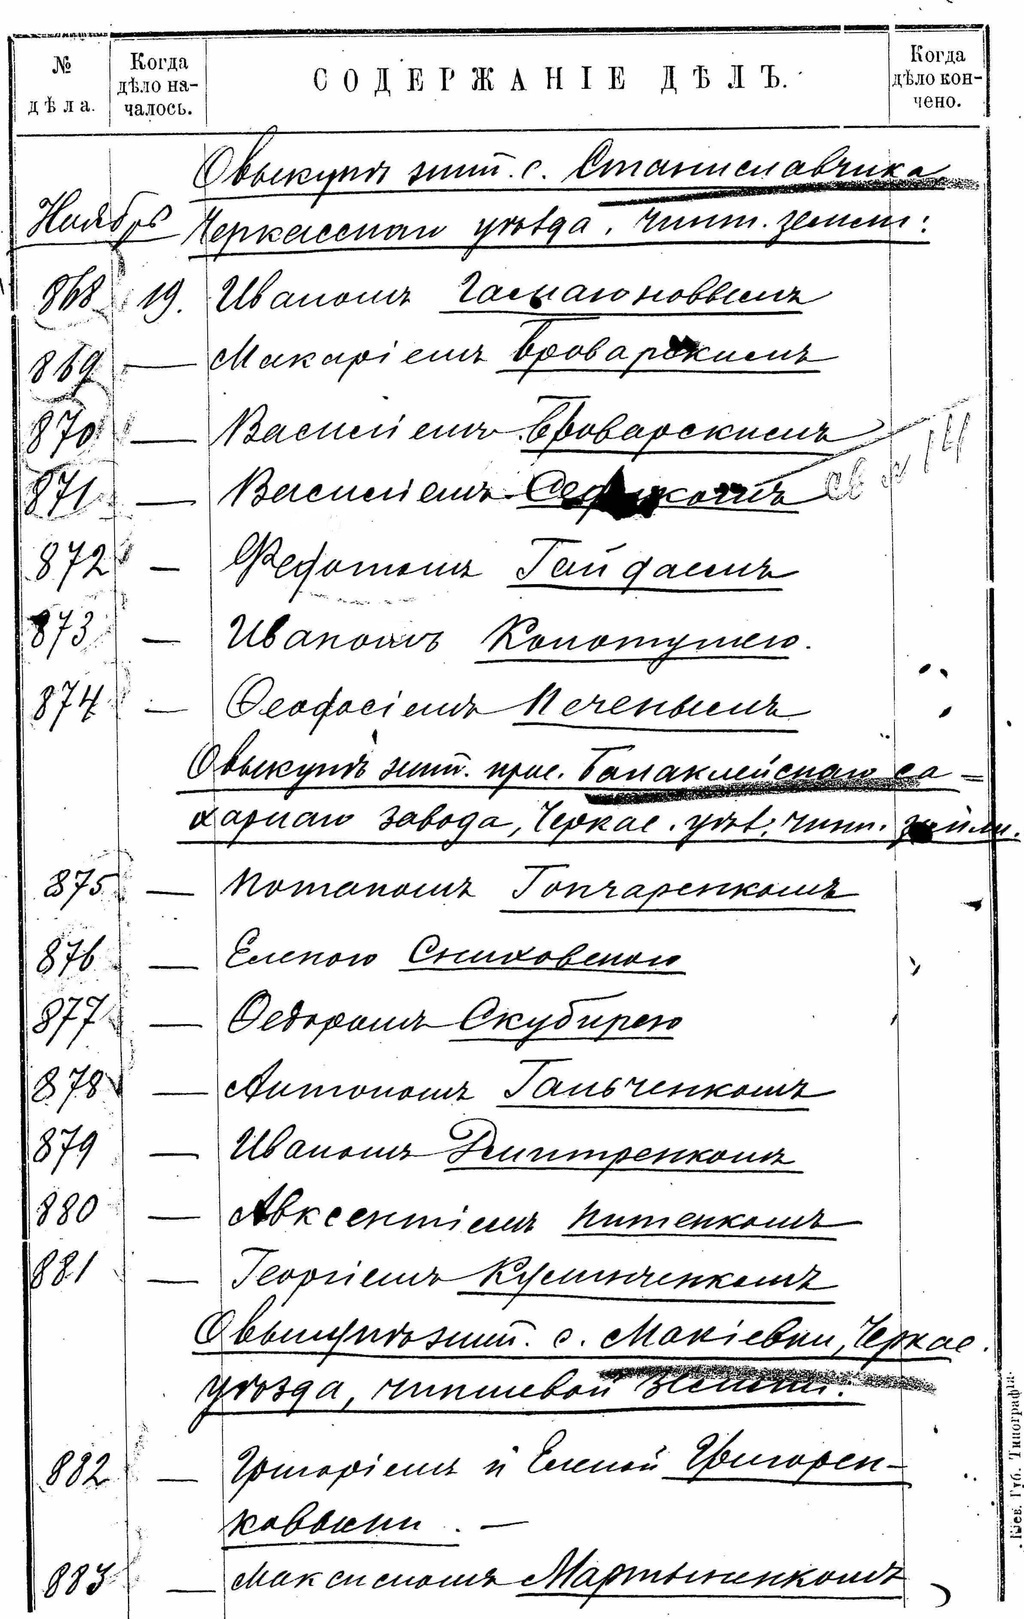 № дѣла.
Когда дѣло началось.
СОДЕРЖАНІЕ ДѢЛЪ.
Когда дѣло кончено.
О выкупѣ жит. с. Станиславчика,
Ноябрь
Черкасскаго уѣзда, чинш. земли:
868 19. Иваномъ
869 — Макаріемъ Броварскимъ
870 — Василіемъ Броварскимъ
871 — Василіемъ
св № 14
872 — Федотомъ Гайдаемъ
873 — Иваномъ Колотушею.
874 — Ѳеодосіемъ Печенымъ
О выкупѣ жит. прис. Балаклейскаго са=
харнаго завода, Черкас. уѣз. чинш. земли.
875 — Потапомъ Гончаренкомъ
876 — Еленою Снѣховскою
877 — Ѳедоромъ Скубирею
878 — Антономъ Гальченкомъ
879 — Иваномъ Дмитренкомъ
880 — Авксентіемъ Питенкомъ
881 — Георгіемъ Кузьменкомъ
О выкупѣ жит. с. Макіевки, Черкас.
уѣзда, чиншевой земли:
882 — Григоріемъ и Еленой Григорен-
ковыми. —
883 — Максимомъ Мартыненкомъ
Кіев. Губ. Типографія.